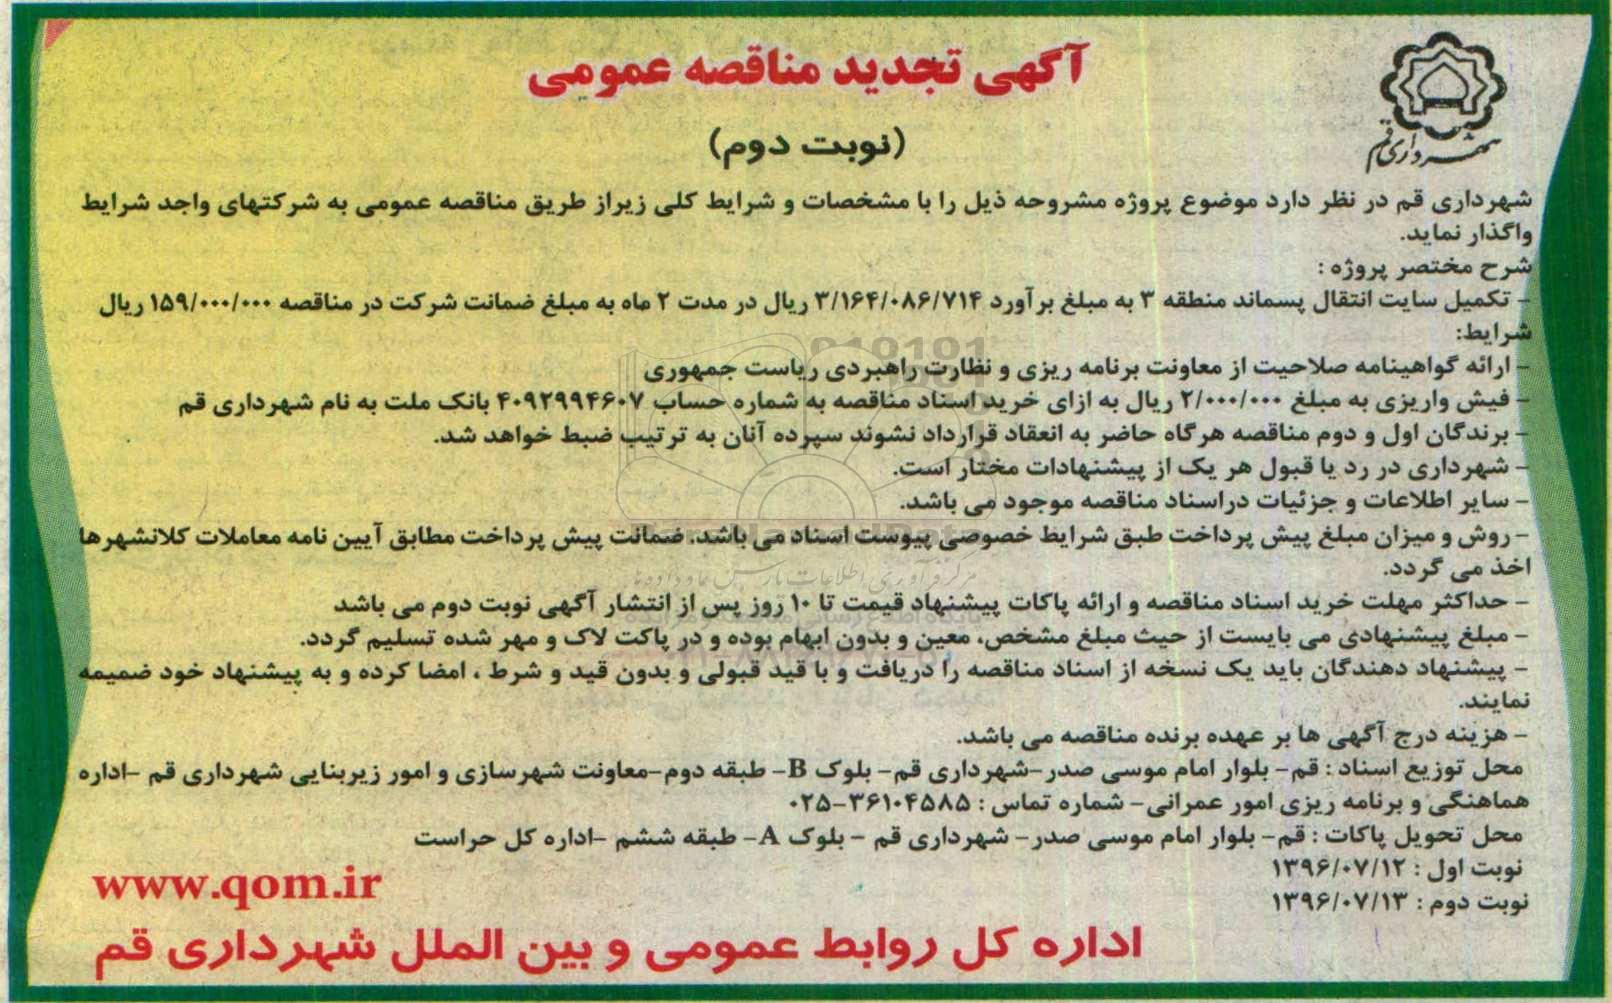 شهرداری قم
آگهی تجدید مناقصه عمومی
(نوبت دوم)
شهرداری قم در نظر دارد موضوع پروژه مشروحه ذیل را با مشخصات و شرایط کلی زیراز طریق مناقصه عمومی به شرکتهای واجد شرایط
واگذار نماید.
شرح مختصر پروژه :
- تکمیل سایت انتقال پسماند منطقه ۳ به مبلغ برآورد ۳/۱۶۴/۰۸۶/۷۱۴ ریال در مدت ۲ ماه به مبلغ ضمانت شرکت در مناقصه ۱۵۹/۰۰۰/۰۰۰ ریال
شرایط:
- ارائه گواهینامه صلاحیت از معاونت برنامه ریزی و نظارت راهبردی ریاست جمهوری
- فیش واریزی به مبلغ ۲/۰۰۰/۰۰۰ ریال به ازای خرید اسناد مناقصه به شماره حساب ۴۰۹۲۹۹۴۶۰۷ بانک ملت به نام شهرداری قم
- برندگان اول و دوم مناقصه هرگاه حاضر به انعقاد قرارداد نشوند سپرده آنان به ترتیب ضبط خواهد شد.
- شهرداری در رد یا قبول هر یک از پیشنهادات مختار است.
- سایر اطلاعات و جزئیات دراسناد مناقصه موجود می باشد.
- روش و میزان مبلغ پیش پرداخت طبق شرایط خصوصی پیوست اسناد می باشد. ضمانت پیش پرداخت مطابق آیین نامه معاملات کلانشهرها
اخذ می گردد.
- حداکثر مهلت خرید اسناد مناقصه و ارائه پاکات پیشنهاد قیمت تا ۱۰ روز پس از انتشار آگهی نوبت دوم می باشد
- مبلغ پیشنهادی می بایست از حیث مبلغ مشخص، معین و بدون ابهام بوده و در پاکت لاک و مهر شده تسلیم گردد.
- پیشنهاد دهندگان باید یک نسخه از اسناد مناقصه را دریافت و با قید قبولی و بدون قید و شرط ، امضا کرده و به پیشنهاد خود ضمیمه
نمایند.
- هزینه درج آگهی ها بر عهده برنده مناقصه می باشد.
محل توزیع اسناد : قم- بلوار امام موسی صدر-شهرداری قم- بلوک B- طبقه دوم-معاونت شهرسازی و امور زیربنایی شهرداری قم -اداره
هماهنگی و برنامه ریزی امور عمرانی- شماره تماس : ۳۶۱۰۴۵۸۵-۰۲۵
محل تحویل پاکات : قم- بلوار امام موسی صدر- شهرداری قم - بلوک A- طبقه ششم -اداره کل حراست
نوبت اول : ۱۳۹۶/۰۷/۱۲
نوبت دوم : ۱۳۹۶/۰۷/۱۳
www.qom.ir
اداره کل روابط عمومی و بین الملل شهرداری قم